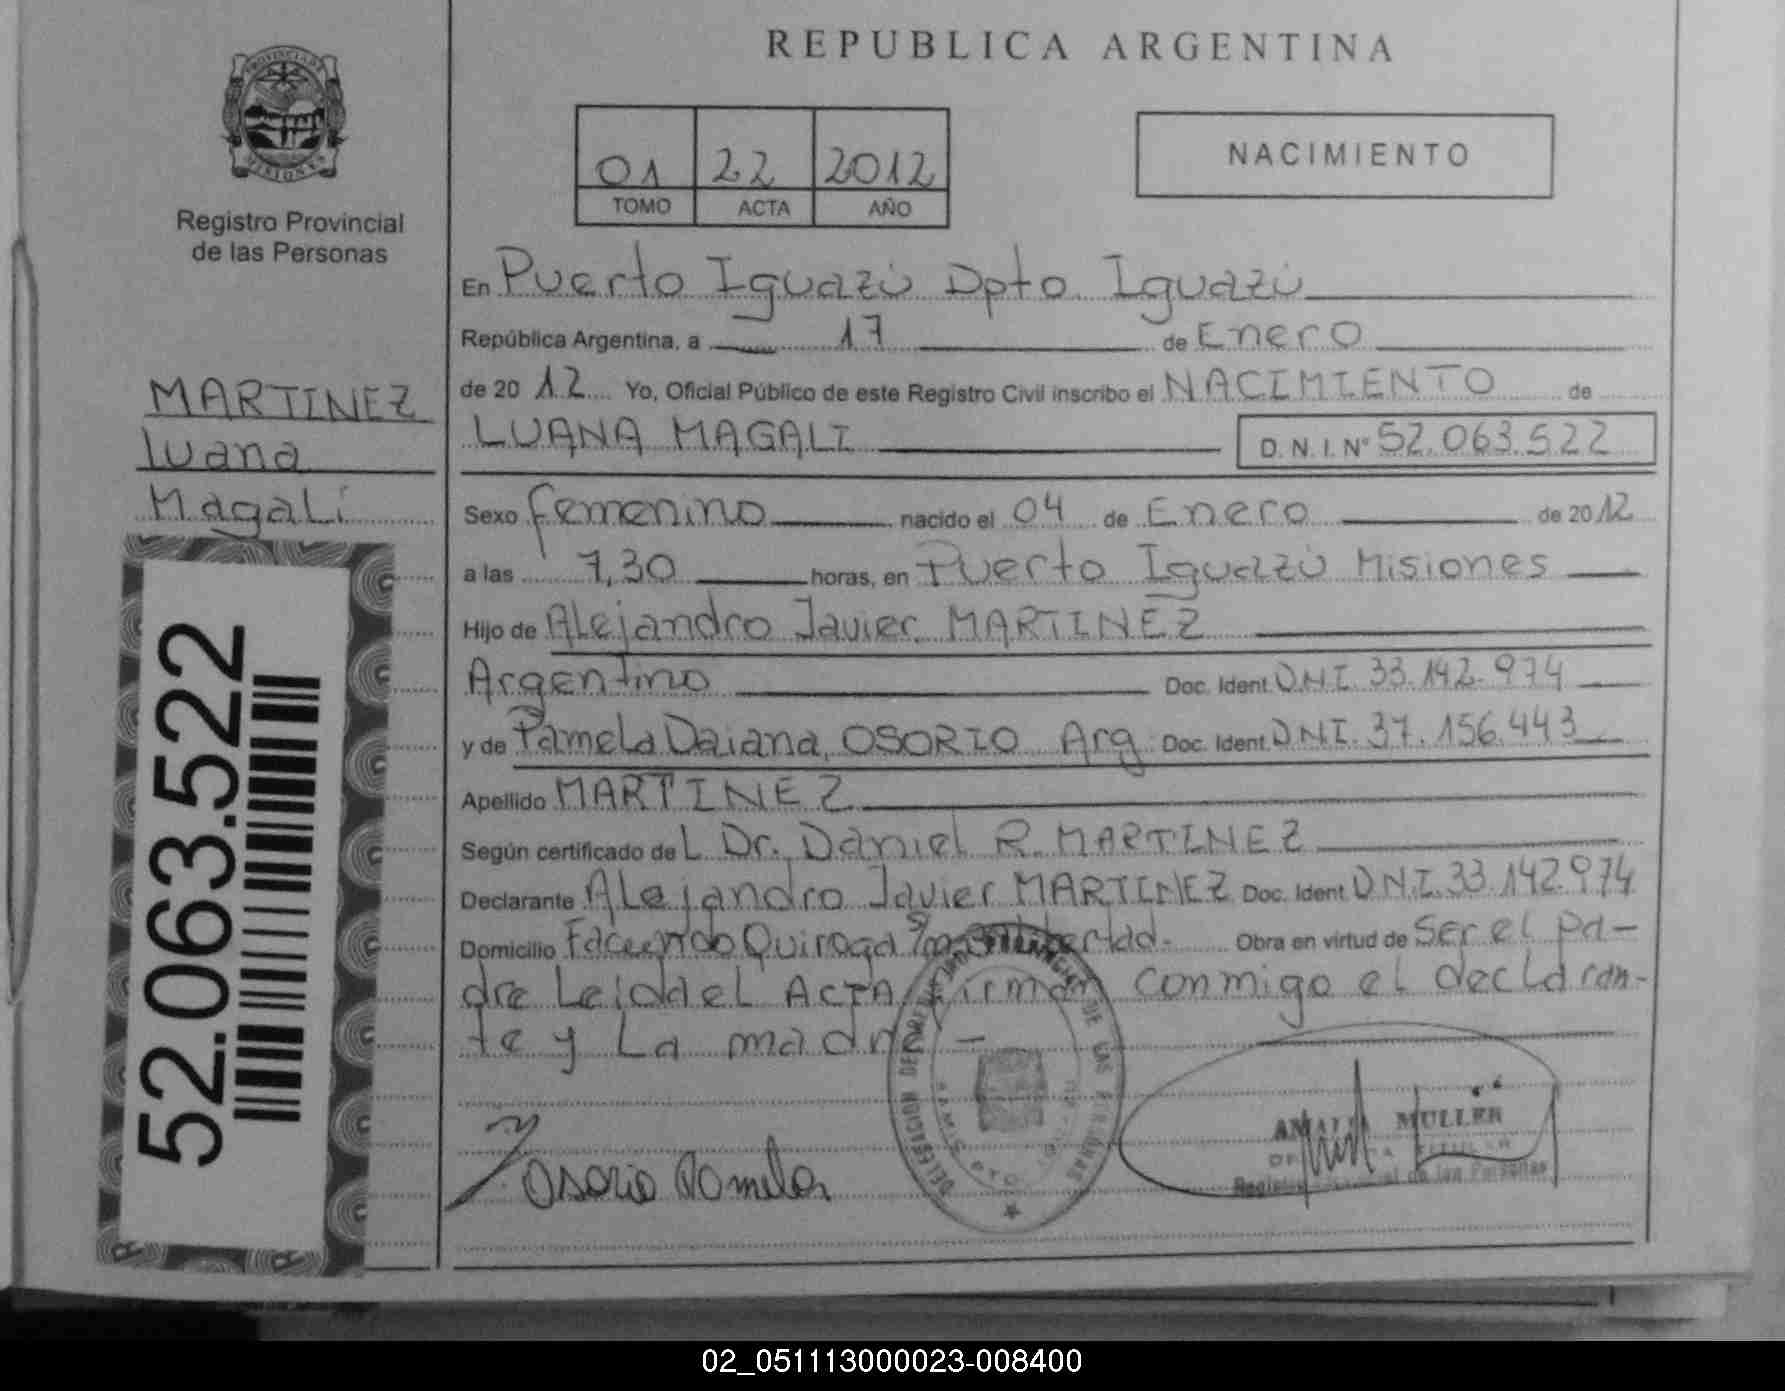 REPUBLICA ARGENTINA
PROVINCIA DE
MISIONES
Registro Provincial
de las Personas
01 22 2012
TOMO ACTA AÑO
NACIMIENTO
MARTINEZ
Luana
Magali
52.063.522
En Puerto Iguazú Dpto. Iguazú
República Argentina, a 17 de Enero
de 20 12 Yo, Oficial Público de este Registro Civil inscribo el NACIMIENTO de
LUANA MAGALI D.N.I. N° 52.063.522
Sexo femenino nacido el 04 de Enero de 20 12
a las 7,30 horas, en Puerto Iguazú Misiones
Hijo de Alejandro Javier MARTINEZ
Argentino Doc. Ident. DNI. 33.142.974
y de Pamela Daiana OSORIO Arg. Doc. Ident. DNI. 37.156.443
Apellido MARTINEZ
Según certificado de L Dr. Daniel R. MARTINEZ
Declarante Alejandro Javier MARTINEZ Doc. Ident. D.N.I. 33.142.974
Domicilio Facundo Quiroga Libertad. Obra en virtud de Ser el pa-
dre Leida el ActA Firman conmigo el declaran-
te y La madre -
DELEGACION DE LAS PERSONAS
Osorio Pamela
AMALIA MULLER
TITULAR
de las Personas
02_051113000023-008400